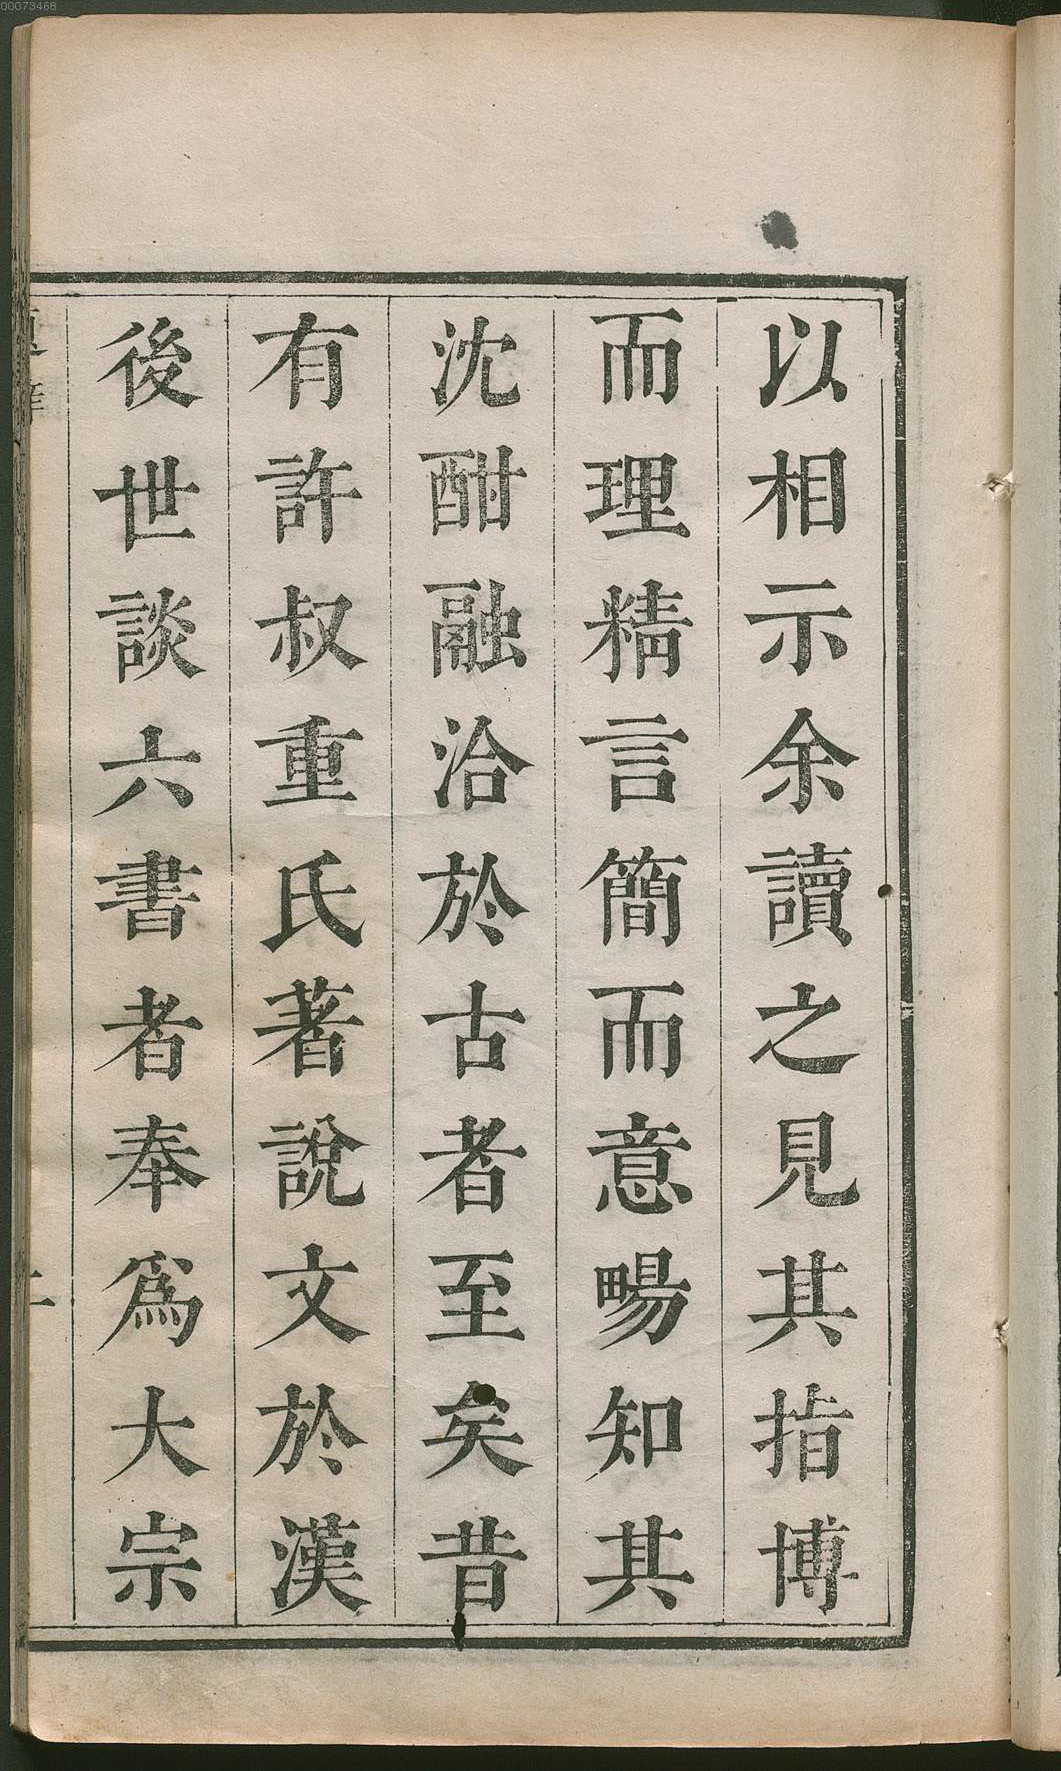 00073468
以相示余讀之見其指博
而理精言簡而意暢知其
沈酣融洽於古者至矣昔
有許叔重氏著說文於漢
後世談六書者奉爲大宗